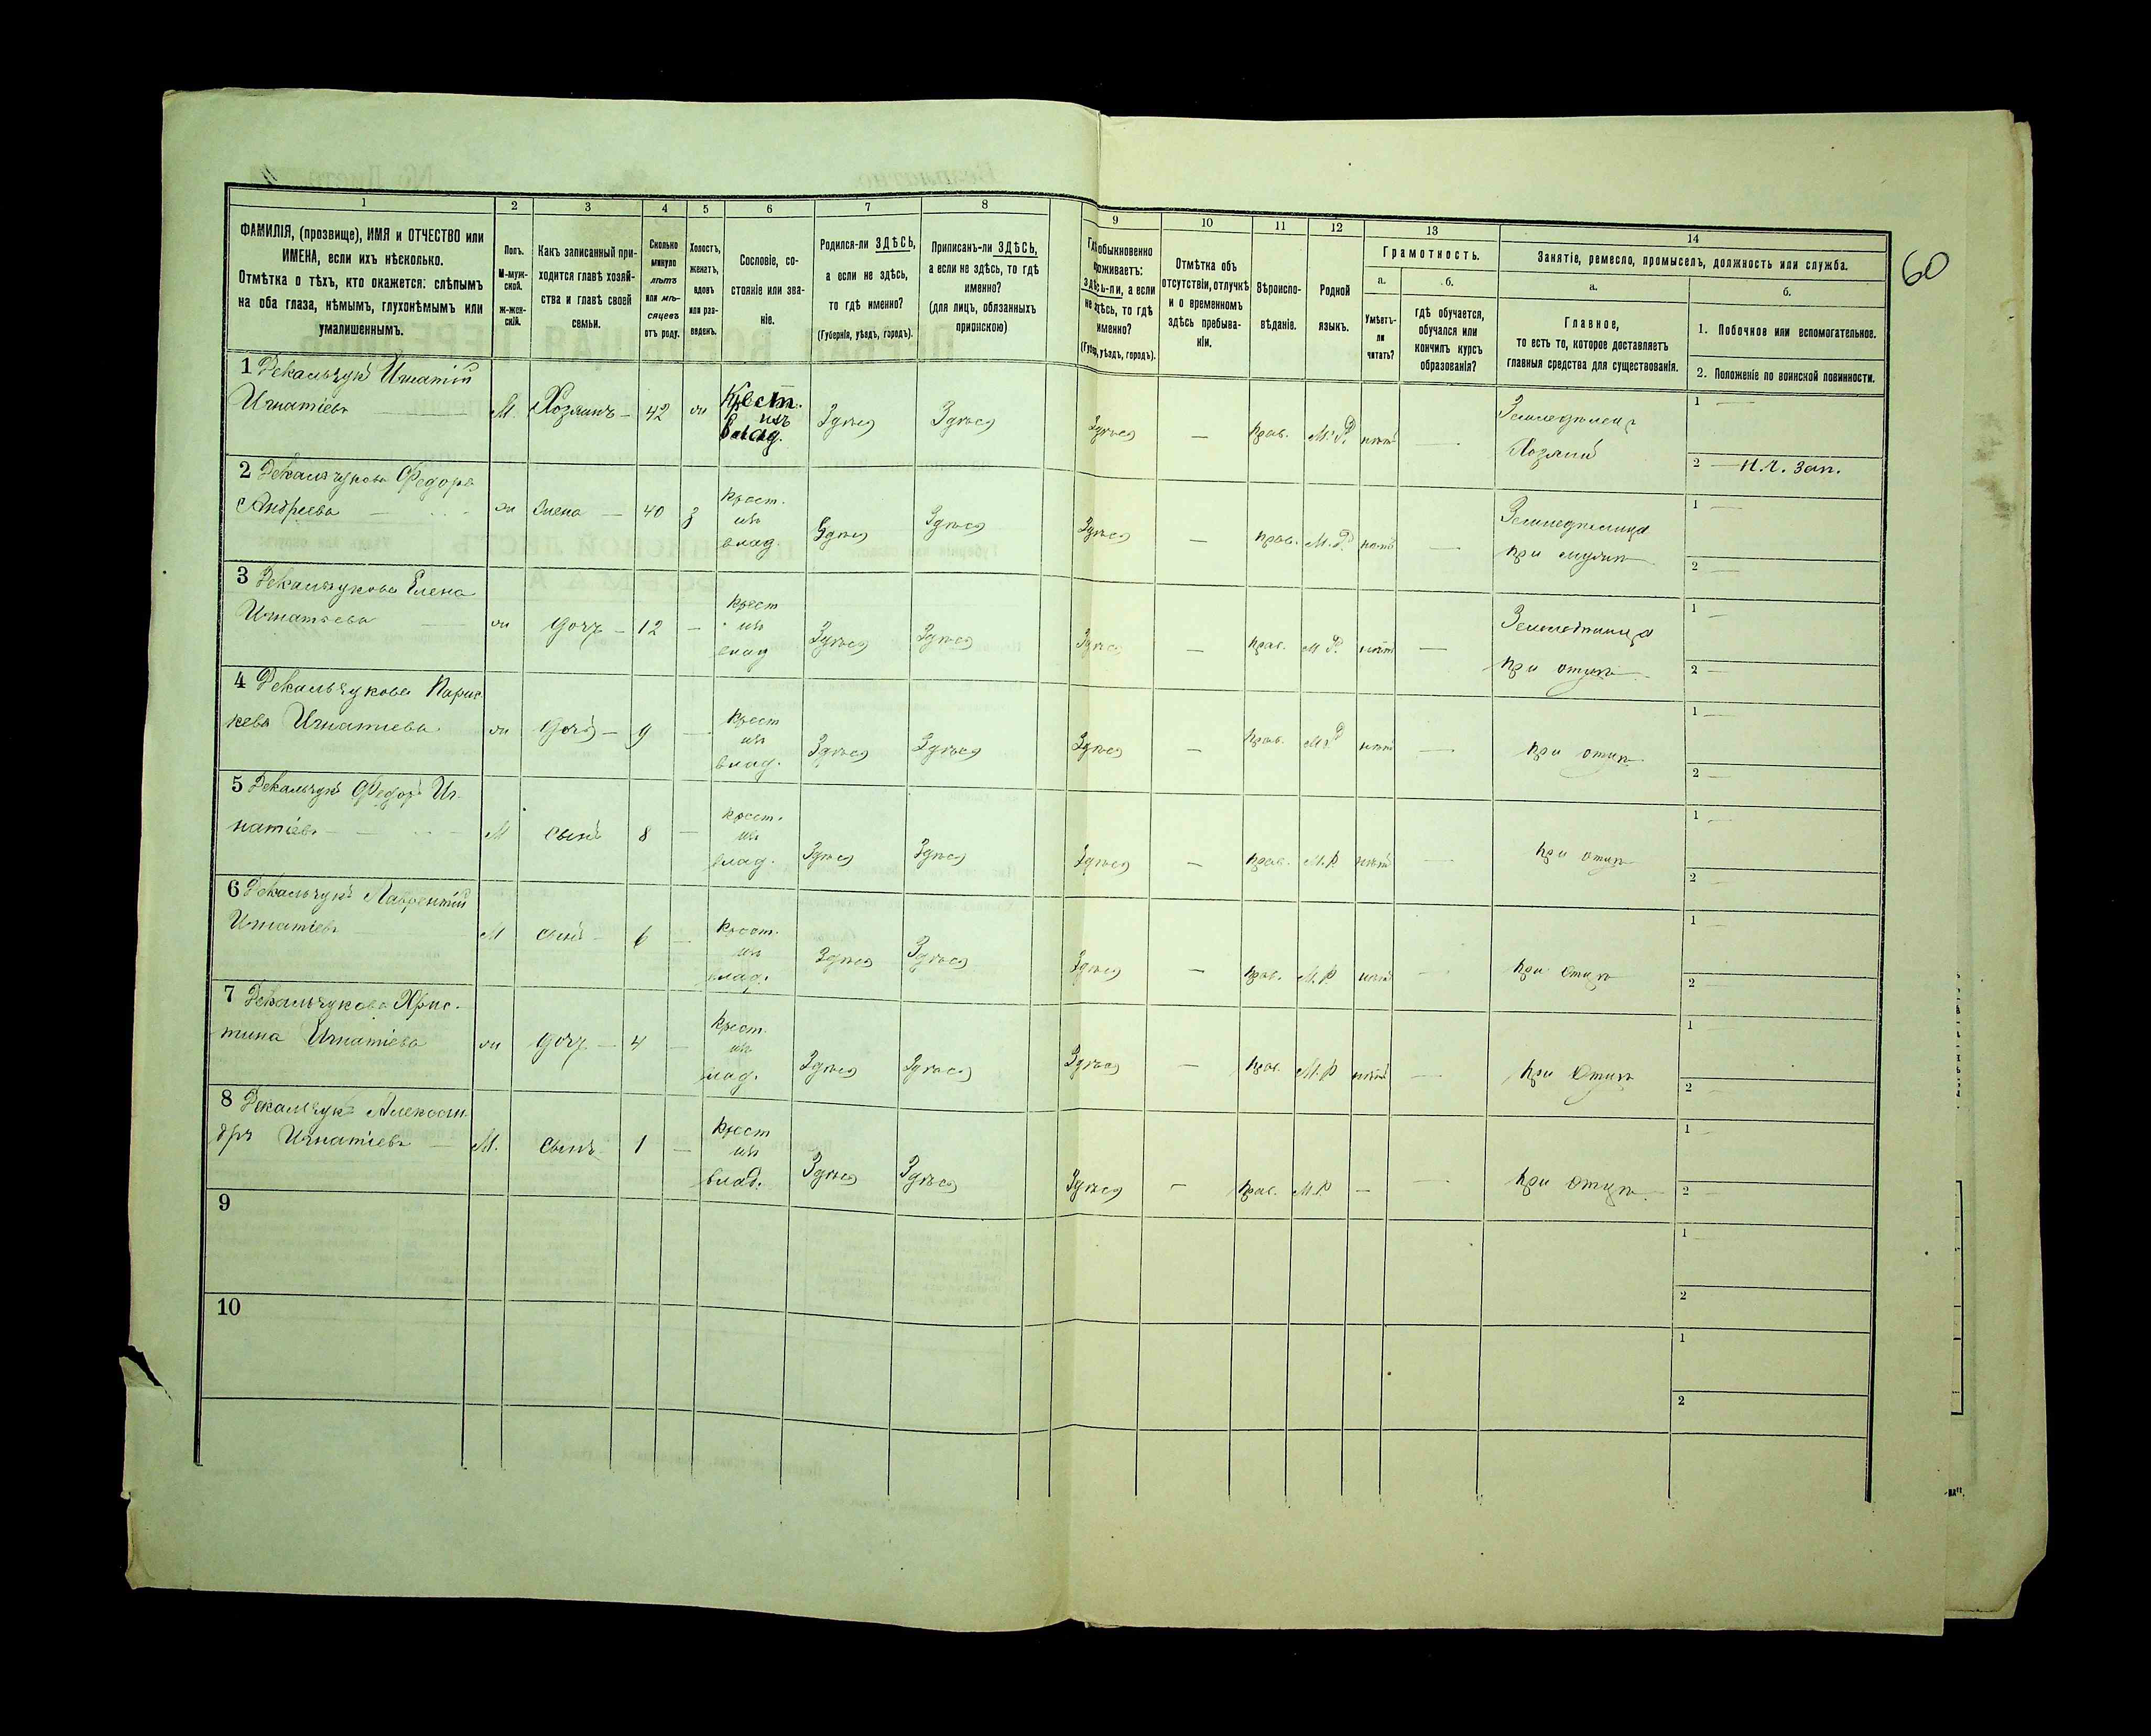 1 2 3 4 5 6 7 8 9 10 11 12 13 14
ФАМИЛІЯ, (прозвище), ИМЯ и ОТЧЕСТВО или
ИМЕНА, если ихъ нѣсколько.
Отмѣтка о тѣхъ, кто окажется: слѣпымъ
на оба глаза, нѣмымъ, глухонѣмымъ или
умалишеннымъ.
Полъ.
М-муж-
ской.
ж-жен-
скій.
Какъ записанный при-
ходится главѣ хозяй-
ства и главѣ своей
семьи.
Сколько
минуло
лѣтъ
или мѣ-
сяцевъ
отъ роду.
Холостъ,
женатъ,
вдовъ
или раз-
веденъ.
Сословіе, со-
стояніе или зва-
ніе.
Родился-ли ЗДѢСЬ,
а если не здѣсь,
то гдѣ именно?
(Губернія, уѣздъ, городъ).
Приписанъ-ли ЗДѢСЬ,
а если не здѣсь, то гдѣ
именно?
(для лицъ, обязанныхъ
припискою)
обыкновенно
проживаетъ:
здѣсь-ли, а если
не здѣсь, то гдѣ
именно?
(Губер, уѣздъ, городъ).
Отмѣтка объ
отсутствіи, отлучкѣ
и о временномъ
здѣсь пребыва-
ніи.
Вѣроиспо-
вѣданіе.
Родной
языкъ.
Грамотность.
а.
Умѣетъ-
ли
читать?
б.
гдѣ обучается,
обучался или
кончилъ курсъ
образованія?
Занятіе, ремесло, промыселъ, должность или служба.
а.
Главное,
то есть то, которое доставляетъ
главныя средства для существованія.
б.
1. Побочное или вспомогательное.
2. Положеніе по воинской повинности.
60
1 Декальчукъ Игнатій
Игнатіевъ — М. Хозяинъ — 42 ж Крест. изъ влад. Здѣсь Здѣсь Здѣсь — Прав. М.Р. нѣтъ — Земледѣлецъ
Хозяинъ
1 —
2 — Н.Ч. зап.
2 Декальчукова Федора
Андреева — ж Жена — 40 З Крест. изъ влад. Здѣсь Здѣсь Здѣсь — Прав. М.Р. нѣтъ — Земледѣлица
при мужѣ
1 —
2 —
3 Декальчукова Елена
Игнатьева — ж дочъ — 12 — Крест изъ влад Здѣсь Здѣсь Здѣсь — Прав. М Р. нѣтъ —
при отцѣ
1 —
2 —
4 Декальчукова Парас
кева Игнатиева ж дочь — 9 — Крест изъ влад. Здѣсь Здѣсь Здѣсь — Прав. М.Р нѣтъ — при отцѣ
1 —
2 —
5 Декальчукъ Федоръ Иг-
натіевъ — М сынъ 8 — Крест. изъ влад. Здѣсь Здѣсь Здѣсь — Прав. М.Р нѣтъ — при отцѣ
1 —
2 —
6 Декальчукъ Лаврентій
Игнатіевъ — М сынъ — 6 — Крест. изъ влад. Здѣсь Здѣсь Здѣсь — Прав. М.Р нѣтъ — при отцѣ
1 —
2 —
7 Декальчукова Хрис-
тина Игнатіева ж дочъ — 4 — Крест. изъ влад. Здѣсь Здѣсь Здѣсь — Прав. М.Р нѣтъ — при отцѣ
1 —
2 —
8 Декальчукъ Алексан
дръ Игнатіевъ — М. сынъ 1 — Крест изъ влад. Здѣсь Здѣсь Здѣсь — Прав. М.Р. — — при отцѣ
1 —
2 —
9
1
2
10
1
2